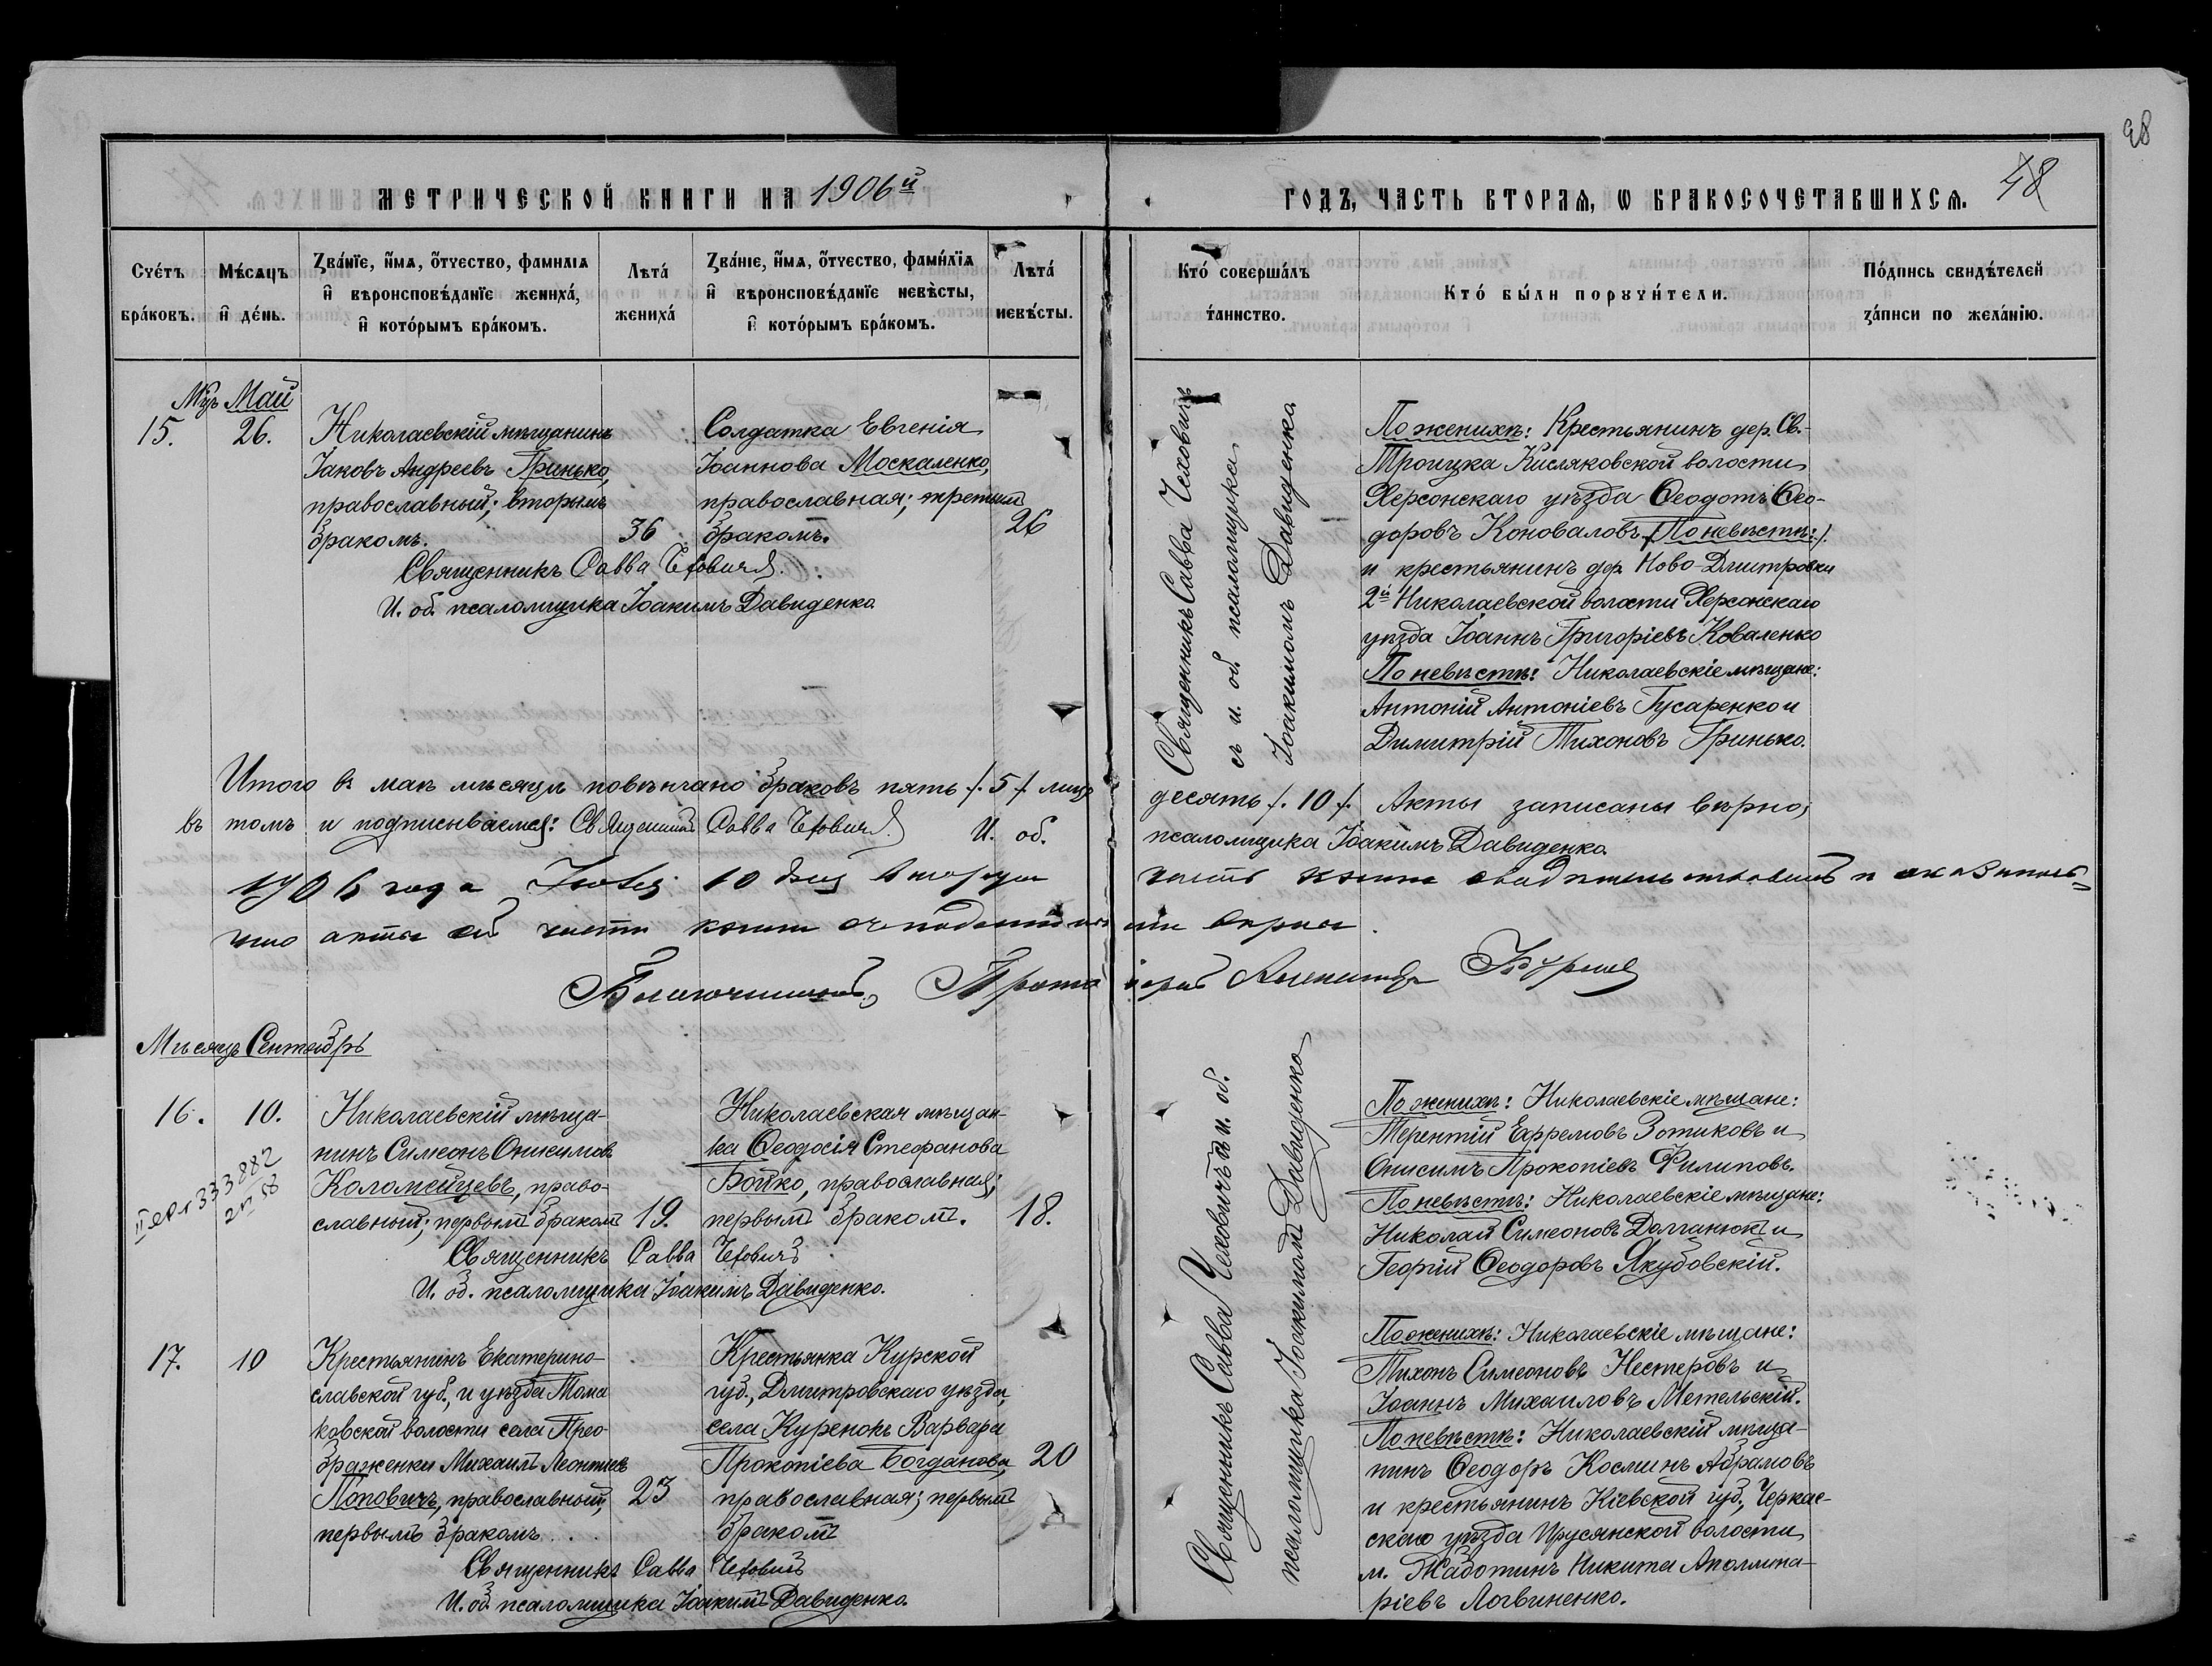 98
48
МЕТРИЧЕСКОЙ КНИГИ НА 1906й ГОДЪ, ЧАСТЬ ВТОРАЯ, Ѡ БРАКОСОЧЕТАВШИХСЯ.
Счетъ браковъ.
Мѣсяцъ и день.
Званіе, имя, отчество, фамилія и вѣроисповѣданіе жениха, и которымъ бракомъ.
Лѣта жениха
Званіе, имя, отчество, фамилія и вѣроисповѣданіе невѣсты, и которымъ бракомъ.
Лѣта невѣсты.
Кто совершалъ таинство.
Кто были поручители.
Подпись свидѣтелей записи по желанію.
Мцъ Май
15.
26.
Николаевскій мѣщанинъ
Іаковъ Андреевъ Гринько,
православный; вторымъ
бракомъ.
36
Солдатка Евгенія
Іоаннова Москаленко,
православная; третьимъ
бракомъ.
26
Священникъ Савва Чеховичъ.
И. об. псаломщика Іоакимъ Давиденко
Священникъ Савва Чеховичъ
съ и. об. псаломщика
Іоакимомъ Давиденко
По женихѣ: Крестьянинъ дер. Св.-
Троицка Кисляковской волости
Херсонскаго уѣзда Ѳеодотъ Ѳео-
доровъ Коноваловъ /.По невѣстѣ:/.
и крестьянинъ дер. Ново-Дмитровки
2й Николаевской волости Херсонскаго
уѣзда Іоаннъ Григоріевъ Коваленко
По невѣстѣ: Николаевскіе мѣщане:
Антоній Антоніевъ Гусаренко и
Димитрій Тихоновъ Гринько.
Итого въ маѣ мѣсяцѣ повѣнчано браковъ пять /.5./ лицъ десять /.10./. Акты записаны вѣрно,
въ томъ и подписываемся: Священникъ Савва Чеховичъ. И. об. псаломщика Іоакимъ Давиденко.
1906 года Іюля 10 дня вторую часть книги свидѣтельствовалъ и
что акты сей части книги вѣрны.
Благочинный, Протоіерей
Мѣсяцъ Сентябрь
16.
10.
Николаевскій мѣща-
нинъ Симеонъ Онисимовъ
Коломейцевъ, право-
славный; первымъ бракомъ
19.
Николаевская мѣщан-
ка Ѳеодосія Стефанова
Бойко, православная;
первымъ бракомъ.
18.
Священникъ Савва Чеховичъ
И. об. псаломщика Іоакимъ Давиденко.
Священникъ Савва Чеховичъ и. об.
псаломщика Іоакимомъ Давиденко
По женихѣ: Николаевскіе мѣщане:
Терентій Ефремовъ Зотиковъ и
Онисимъ Прокопіевъ Филиповъ.
По невѣстѣ: Николаевскіе мѣщане:
Николай Симеоновъ Долганюкъ и
Георгій Ѳеодоровъ Якубовскій.
17.
10
Крестьянинъ Екатерино-
славской губ., и уѣзда Тома
ковской волости села Прео-
браженки Михаилъ Леонтіевъ
Поповичъ, православный,
первымъ бракомъ
23
Крестьянка Курской
губ., Дмитровскаго уѣзда,
села Куренокъ Варвара
Прокопіева Богданова,
православная; первымъ
бракомъ
20
Священникъ Савва Чеховичъ
И. об. псаломщика Іоакимъ Давиденко.
По женихѣ: Николаевскіе мѣщане:
Тихонъ Симеоновъ Нестеровъ и
Іоаннъ Михаиловъ Метельскій.
По невѣстѣ: Николаевскій мѣща-
нинъ Ѳеодоръ Косминъ Абрамовъ
и крестьянинъ Кіевской губ., Черкас-
скаго уѣзда волости
м. Жаботинъ Никита Аполлина-
ріевъ Логвиненко.